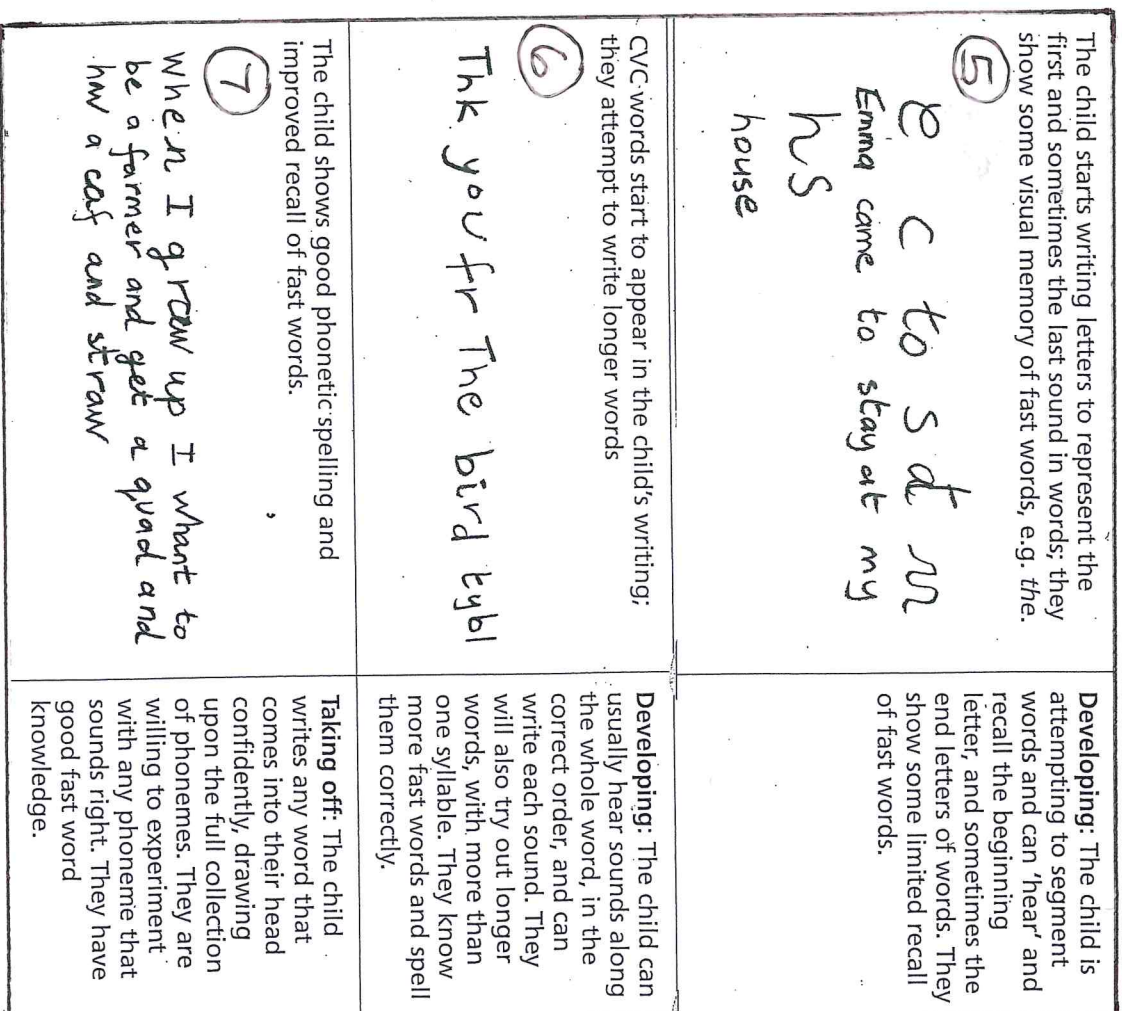 The child starts writing letters to represent the
first and sometimes the last sound in words; they
show some visual memory of fast words, e.g. the.
5
e c to s at m
Emma came to stay at my
hs
house
Developing: The child is
attempting to segment
words and can 'hear' and
recall the beginning
letter, and sometimes the
end letters of words. They
show some limited recall
of fast words.
CVC words start to appear in the child's writing;
they attempt to write longer words
6
Thk you fr The bird tybl
Developing: The child can
usually hear sounds along
the whole word, in the
correct order, and can
write each sound. They
will also try out longer
words, with more than
one syllable. They know
more fast words and spell
them correctly.
The child shows good phonetic spelling and
improved recall of fast words.
7
When I grow up I whant to
be a farmer and get a quad and
hav a caf and straw
Taking off: The child
writes any word that
comes into their head
confidently, drawing
upon the full collection
of phonemes. They are
willing to experiment
with any phoneme that
sounds right. They have
good fast word
knowledge.